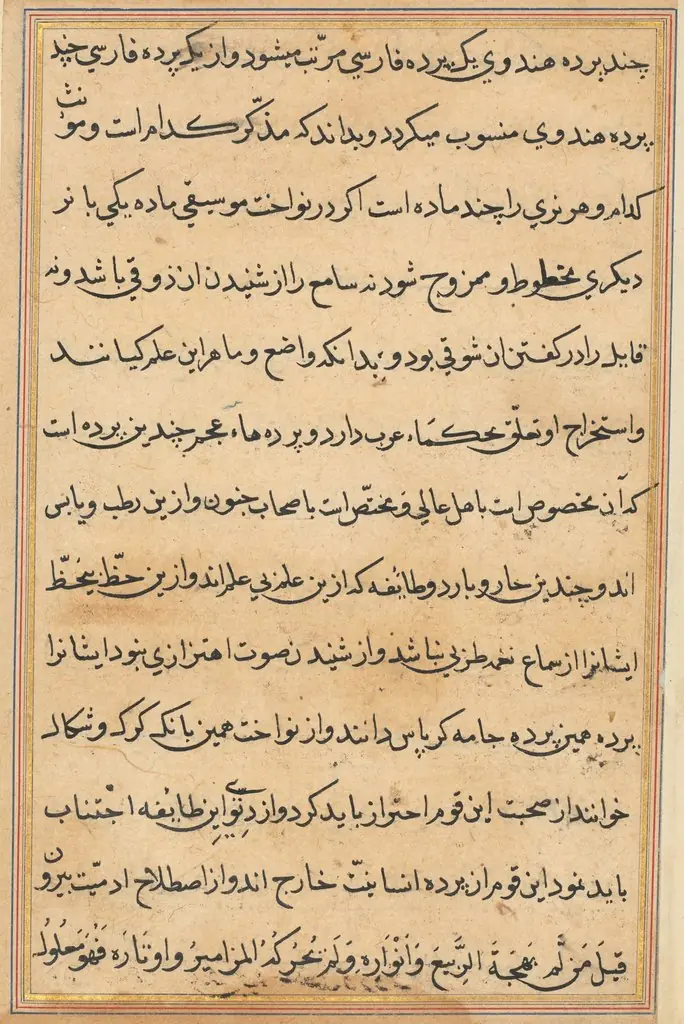 چند پرده هندوي يك پرده فارسي مرتّب ميشود واز يك پرده فارسي چند
پرده هندوي منسوب ميكردد وبداند كه مذكّر كدام است ومونث
كدام وهر نري را چند ماده است اكر در نواخت موسيقي ماده يكي با نر
ديكري مخطوط وممزوج شود نه سامع را از شنيدن ان ذوقي باشد ونه
قايل را در كفتن ان شوقي بود و بدانكه واضع وماهر اين علم كيانند
واستخراج او تعلّق بحكماء عرب دارد وپرده هاء عجم چندين پرده است
كه آن مخصوص است باهل عالي و مختصّ است باصحاب جنون وازين رطب ويابس
اند وچندين حار وبارد وطائفه كه ازين علم بي علم اند وازين حظّ بيحظّ
ايشانرا از سماع نغمه طربي نباشد واز شنيدن صوت اهتزازي نبود ايشانرا
پرده همين پرده جامه كرپاس دانند واز نواخت همين بانك كرك وشكال
خوانند از صحبت اين قوم احتراز بايد كرد واز اين طائفه اجتناب
بايد نمود اين قوم از پرده انسانيتّ خارج اند واز اصطلاح ادميّت بيرون
قيلَ مَن لَّم بَهجَةَ الرَّبيعَ وَاَنْوَارِه وَلَم تُحرِكهُ المزاميرُ واوتَارَه فَهُوَ مَعلُولُ